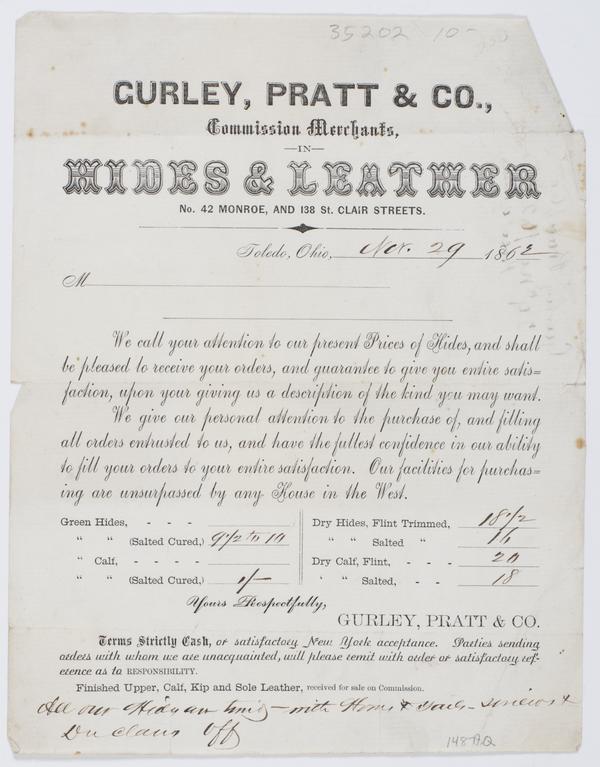 35202 10-
GURLEY, PRATT & CO.,
Commission Merchants,
—IN—
HIDES & LEATHER
No. 42 MONROE, AND 138 St. CLAIR STREETS.
Toledo, Ohio, Nov. 29 1862
M
We call your attention to our present Prices of Hides, and shall
be pleased to receive your orders, and guarantee to give you entire satis=
faction, upon your giving us a description of the kind you may want.
We give our personal attention to the purchase of, and filling
all orders entrusted to us, and have the fullest confidence in our ability
to fill your orders to your entire satisfaction. Our facilities for purchas=
ing are unsurpassed by any House in the West.
Green Hides, - - -
" " (Salted Cured,) 9 1/2 to 10
" Calf, - - - -
" " (Salted Cured,) 1/-
Dry Hides, Flint Trimmed, 18 1/2
" " Salted "
Dry Calf, Flint, - - - 20
" " Salted, - - 18
Yours Respectfully,
GURLEY, PRATT & CO.
Terms Strictly Cash, or satisfactory New York acceptance. Parties sending
orders with whom we are unacquainted, will please remit with order or satisfactory ref-
erence as to RESPONSIBILITY.
Finished Upper, Calf, Kip and Sole Leather, received for sale on Commission.
All our Hides are - with Horns & - sinews &
Du claws off